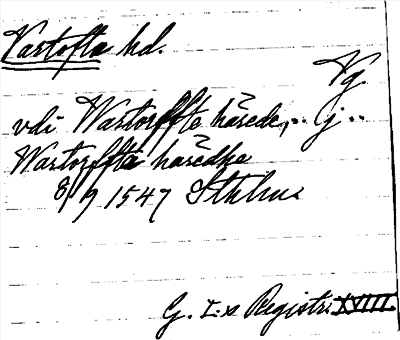 Vartofta hd.
Vg.
vdi Wartorffta härede,.. J..
Wartorffta häredhe
8/9 1547 Sthlm
G. I:s Registr. XVIII.